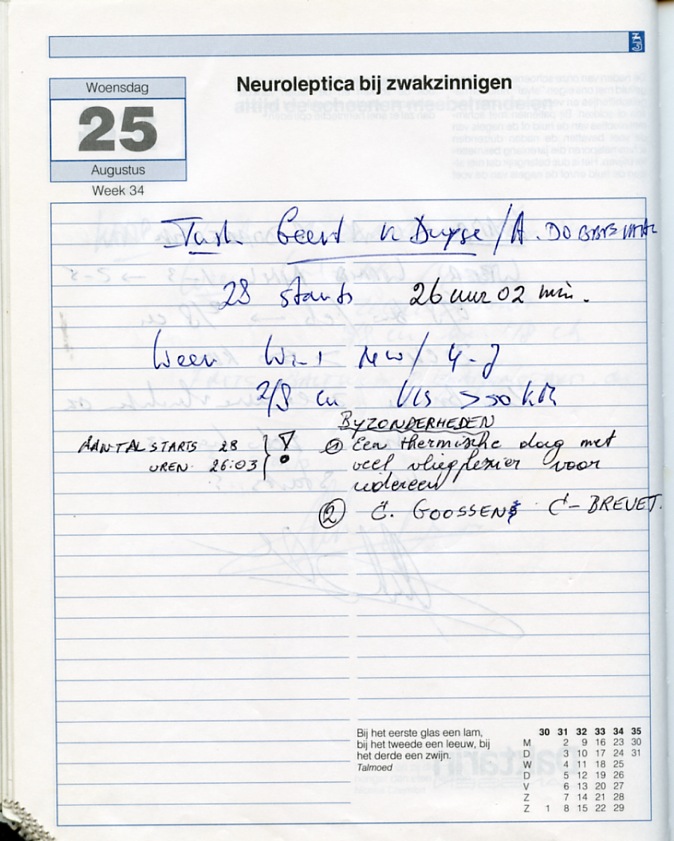 Woensdag
25
Augustus
Week 34
Neuroleptica bij zwakzinnigen
Geert v Duyse / A. DOBBELAAR
28 starts 26 uur 02 min.
Weer Wind NW / 4-7
2/8 cu Vis >50 KM
BYZONDERHEDEN
AANTAL STARTS 28
UREN 26:03
① Een thermische dag met
veel vliegplezier voor
iedereen
② C. GOOSSENS C-BREVET.
Bij het eerste glas een lam,
bij het tweede een leeuw, bij
het derde een zwijn.
Talmoed
30 31 32 33 34 35
M 2 9 16 23 30
D 3 10 17 24 31
W 4 11 18 25
D 5 12 19 26
V 6 13 20 27
Z 7 14 21 28
Z 1 8 15 22 29